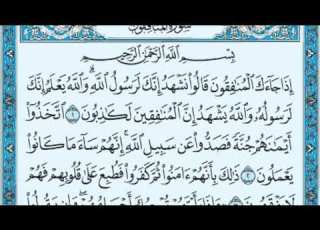 سورة المنافقون
بِسْمِ اللَّهِ الرَّحْمَٰنِ الرَّحِيمِ
إِذَا جَاءَكَ الْمُنَافِقُونَ قَالُوا نَشْهَدُ إِنَّكَ لَرَسُولُ اللَّهِ وَاللَّهُ يَعْلَمُ إِنَّكَ
لَرَسُولُهُ وَاللَّهُ يَشْهَدُ إِنَّ الْمُنَافِقِينَ لَكَاذِبُونَ ١ اتَّخَذُوا
أَيْمَانَهُمْ جُنَّةً فَصَدُّوا عَن سَبِيلِ اللَّهِ إِنَّهُمْ سَاءَ مَا كَانُوا
يَعْمَلُونَ ٢ ذَٰلِكَ بِأَنَّهُمْ آمَنُوا ثُمَّ كَفَرُوا فَطُبِعَ عَلَىٰ قُلُوبِهِمْ فَهُمْ